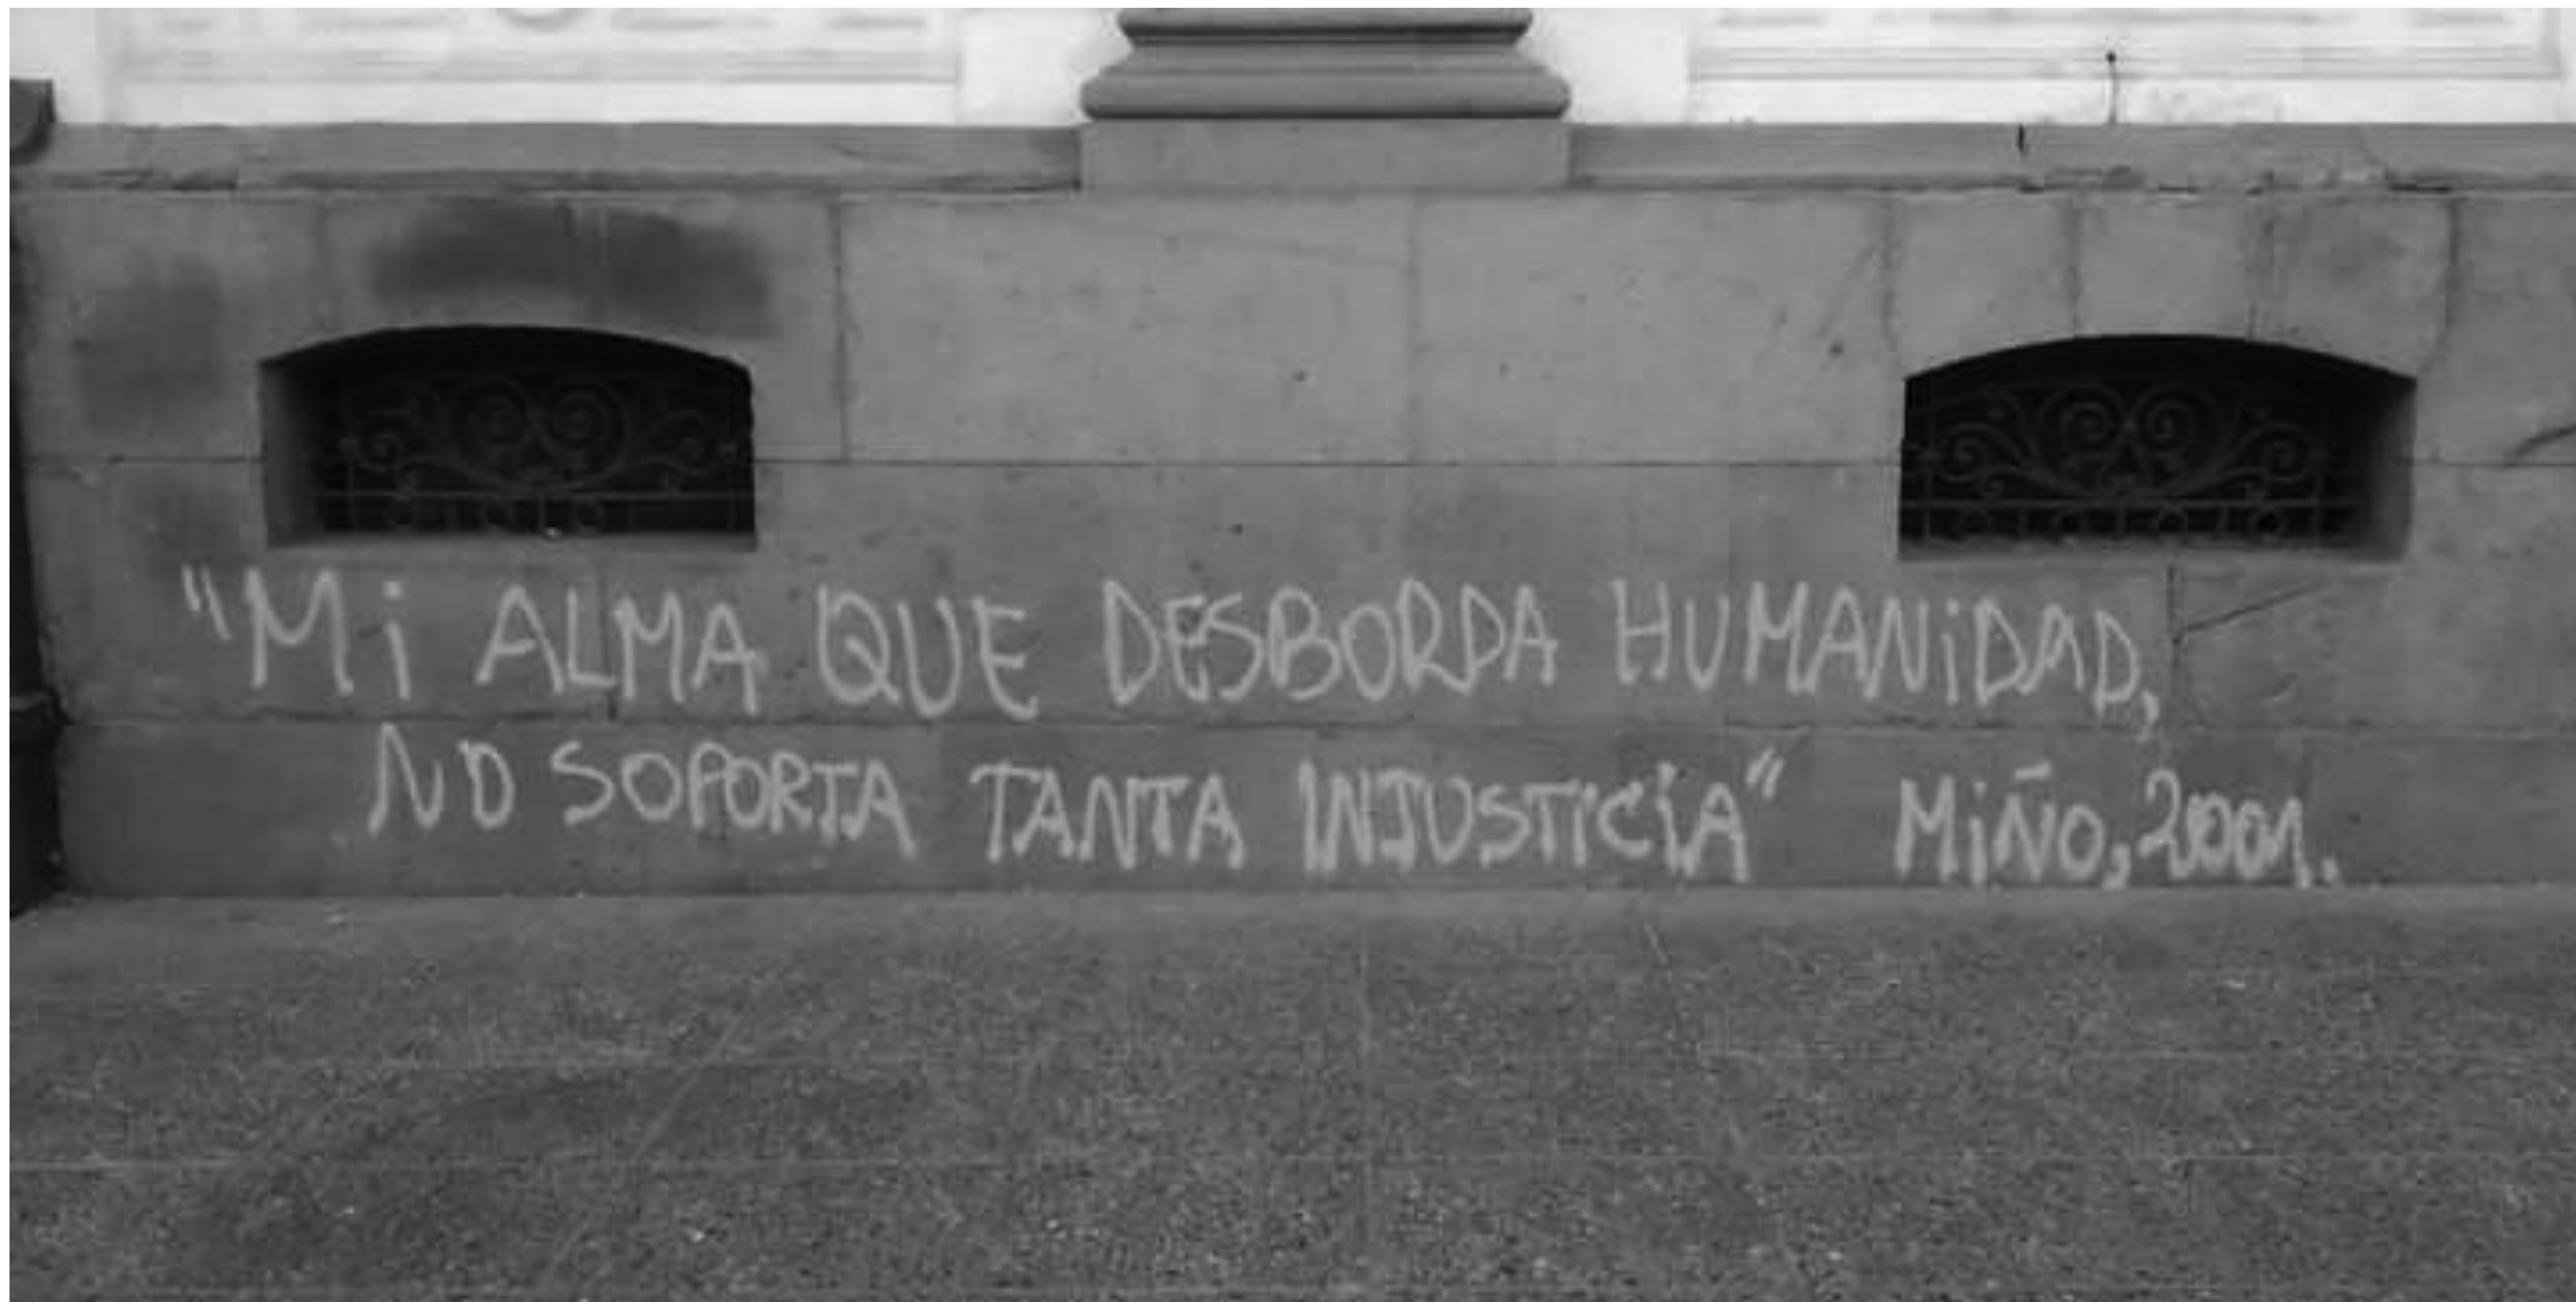 "Mi ALMA QUE DESBORDA HUMANiDAD,
NO SOPORTA TANTA INJUSTICiA" MiÑO, 2001.